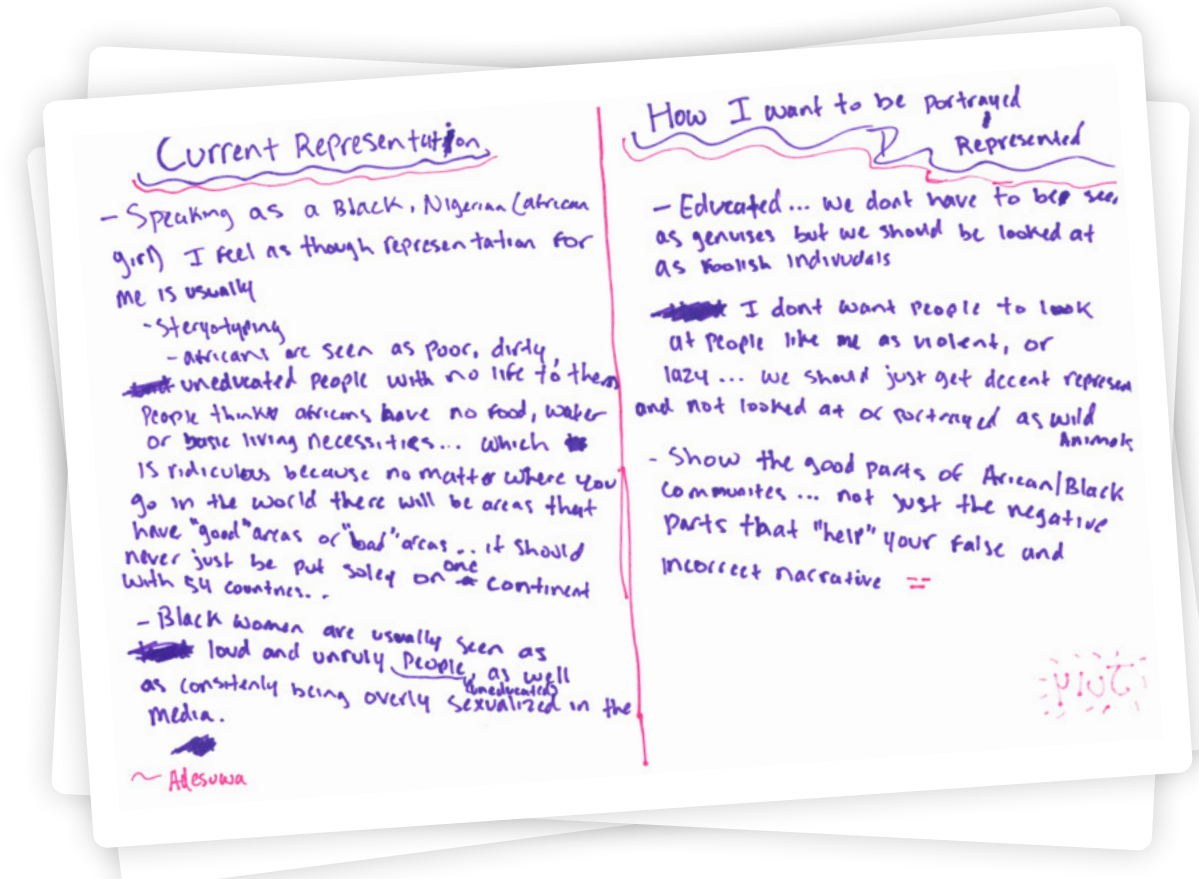 Current Representation
- Speaking as a Black, Nigerian (african
girl) I feel as though representation for
me is usually
- Steryotyping
- africans are seen as poor, dirty,
uneducated people with no life to them
People think africans have no food, water
or basic living necessities... which
is ridiculous because no matter where you
go in the world there will be areas that
have "good" areas or "bad" areas... it should
never just be put soley on one continent
with 54 countries..
- Black women are usually seen as
loud and unruly people, as well
(uneducated)
as consitenly being overly sexualized in the
media.
~ Adesuwa
How I want to be portrayed
Represented
- Educated... we dont have to be seen
as genuises but we should be looked at
as foolish indivudals
I dont want people to look
at people like me as violent, or
lazy... we should just get decent represen
and not looked at or portrayed as wild
Animals
- Show the good parts of Arican/Black
communites... not just the negative
parts that "help" your false and
incorrect narrative